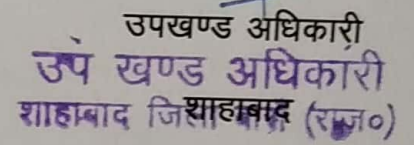 उपखण्ड अधिकारी
उप खण्ड अधिकारी
शाहाबाद जिला शाहाबाद (राज०)